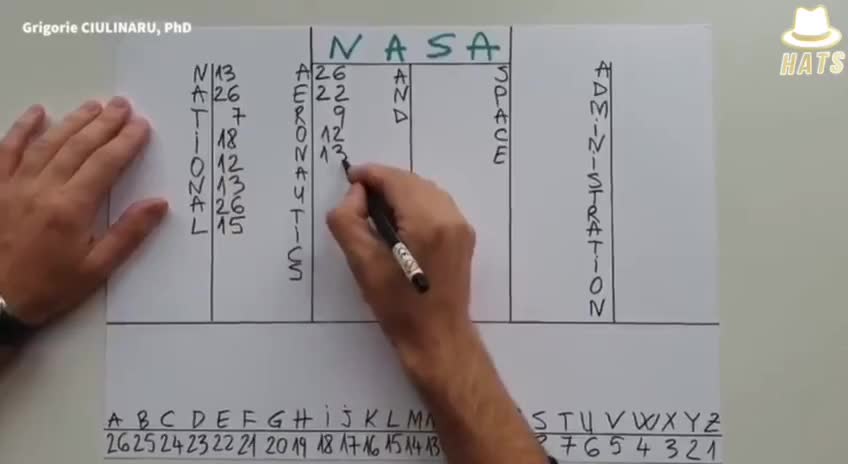 Grigorie CIULINARU, PhD
HATS
NASA
N 13
A 26
T 7
i 18
O 12
N 13
A 26
L 15
A 26
E 22
R 9
O 12
N 13
A
U
T
i
C
S
A
N
D
S
P
A
C
E
A
D
M
i
N
i
S
T
R
A
T
i
O
N
A B C D E F G H i j K L M S T U V W X Y Z
26 25 24 23 22 21 20 19 18 17 16 15 14 13 7 6 5 4 3 2 1